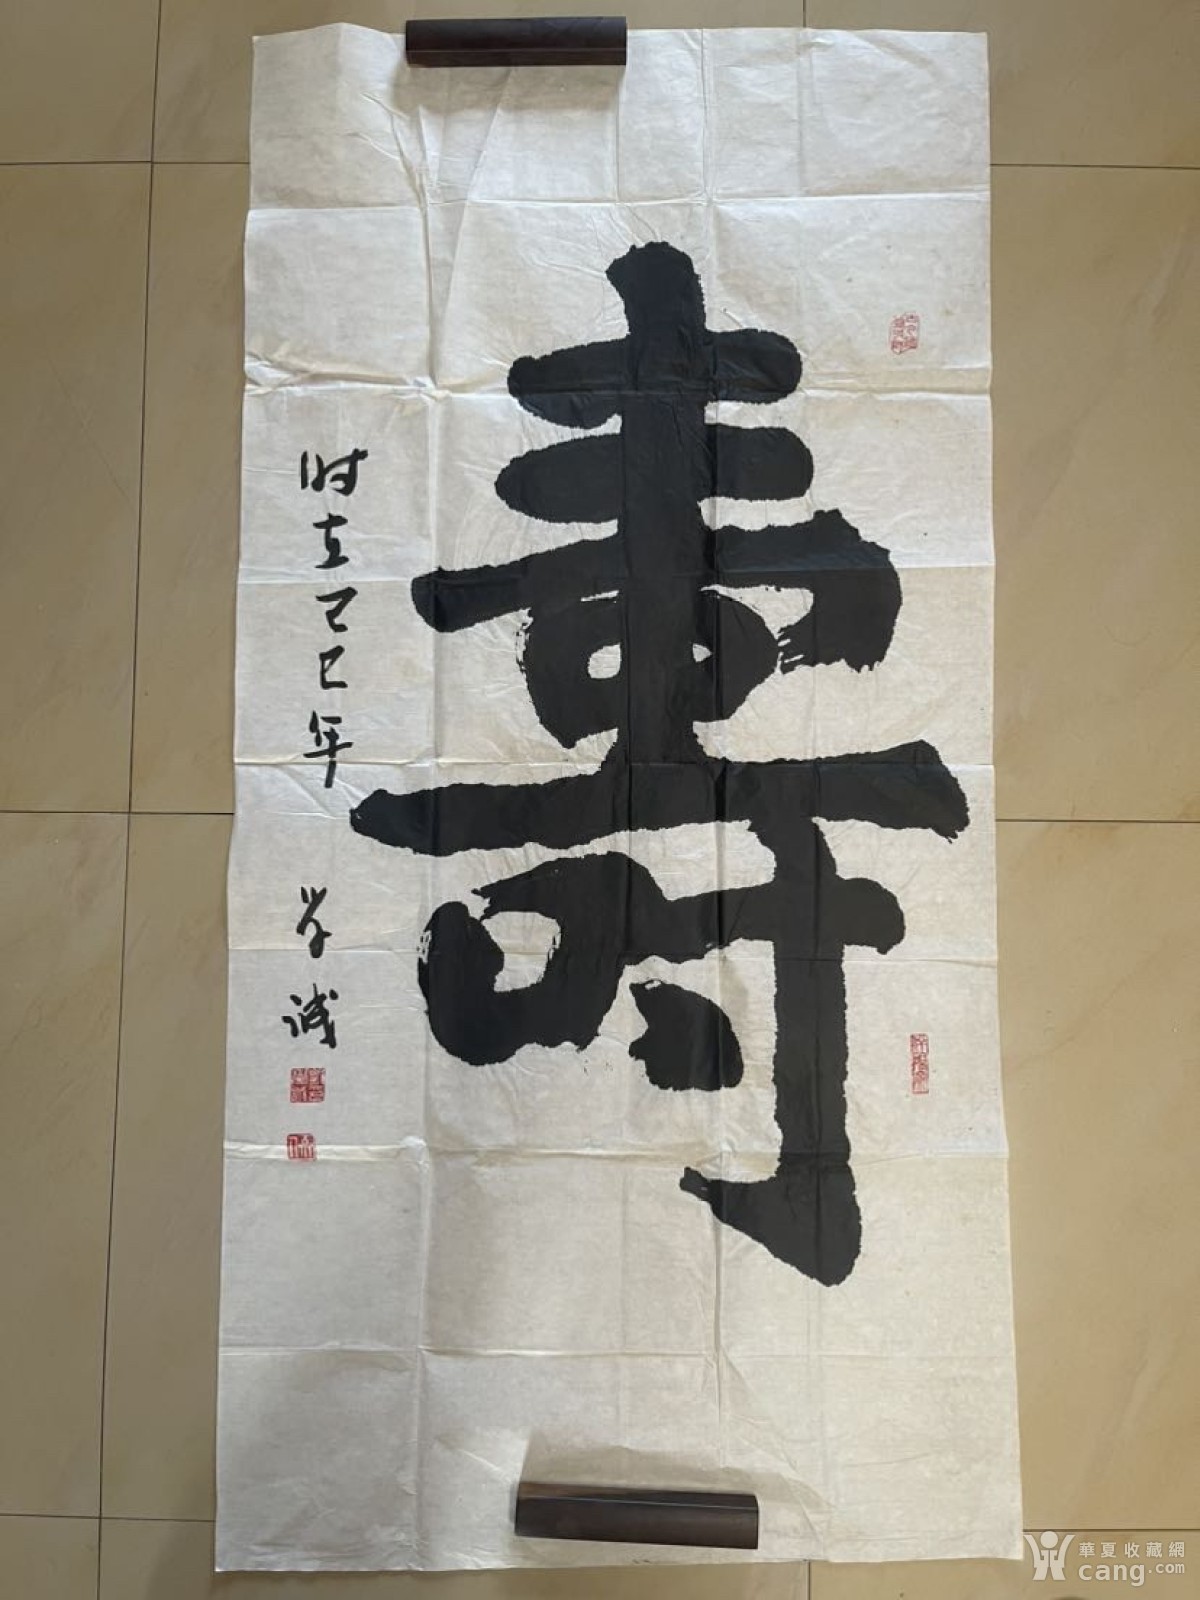 壽
时在己巳年
学诚
華夏收藏網
cang.com